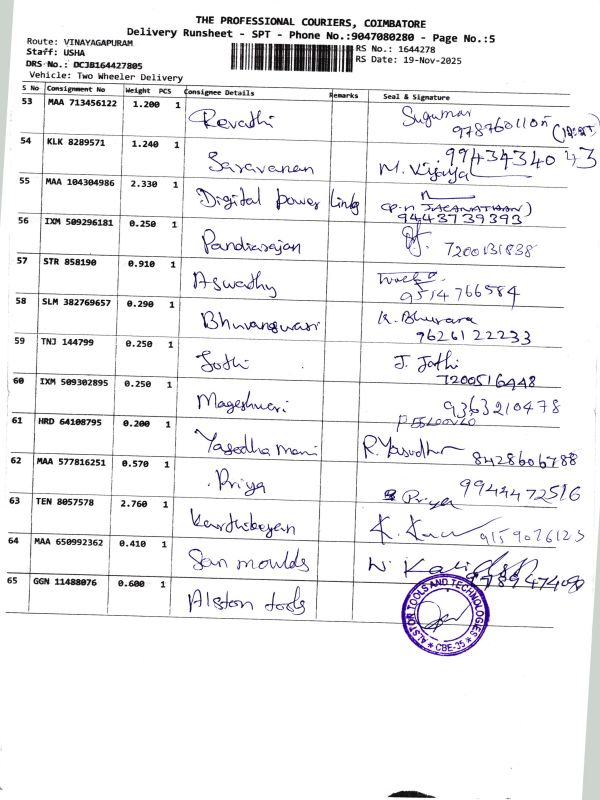 THE PROFESSIONAL COURIERS, COIMBATORE
Delivery Runsheet - SPT - Phone No.:9047080280 - Page No.:5
Route: VINAYAGAPURAM
RS No.: 1644278
Staff: USHA
RS Date: 19-Nov-2025
DRS No.: DCJB164427805
Vehicle: Two Wheeler Delivery
S No Consignment No Weight PCS Consignee Details Remarks Seal & Signature
53 MAA 713456122 1.200 1 Revathi Sugumar
54 KLK 8289571 1.240 1 Saravanan M. Vijaya 9943434043
55 MAA 104304986 2.330 1 Digital power Link
9443739393
56 IXM 509296181 0.250 1 Pandiarajan 7200131838
57 STR 858190 0.910 1 Aswathy
9514766584
58 SLM 382769657 0.290 1 Bhuvaneswari K. Bhuvana
9626122233
59 TNJ 144799 0.250 1 Jothi J. Jothi
7200516448
60 IXM 509302895 0.250 1 Mageshwari 9363210478
61 HRD 64108795 0.200 1 Yasodha mani R. Yasodha 8428606788
62 MAA 577816251 0.570 1 Priya Priya 9944472516
63 TEN 8057578 2.760 1 Karthikeyan 9159076123
64 MAA 650992362 0.410 1 San moulds
65 GGN 11488076 0.600 1 Alston tools
ALSTOR TOOLS AND TECHNOLOGIES
* CBE-35 *